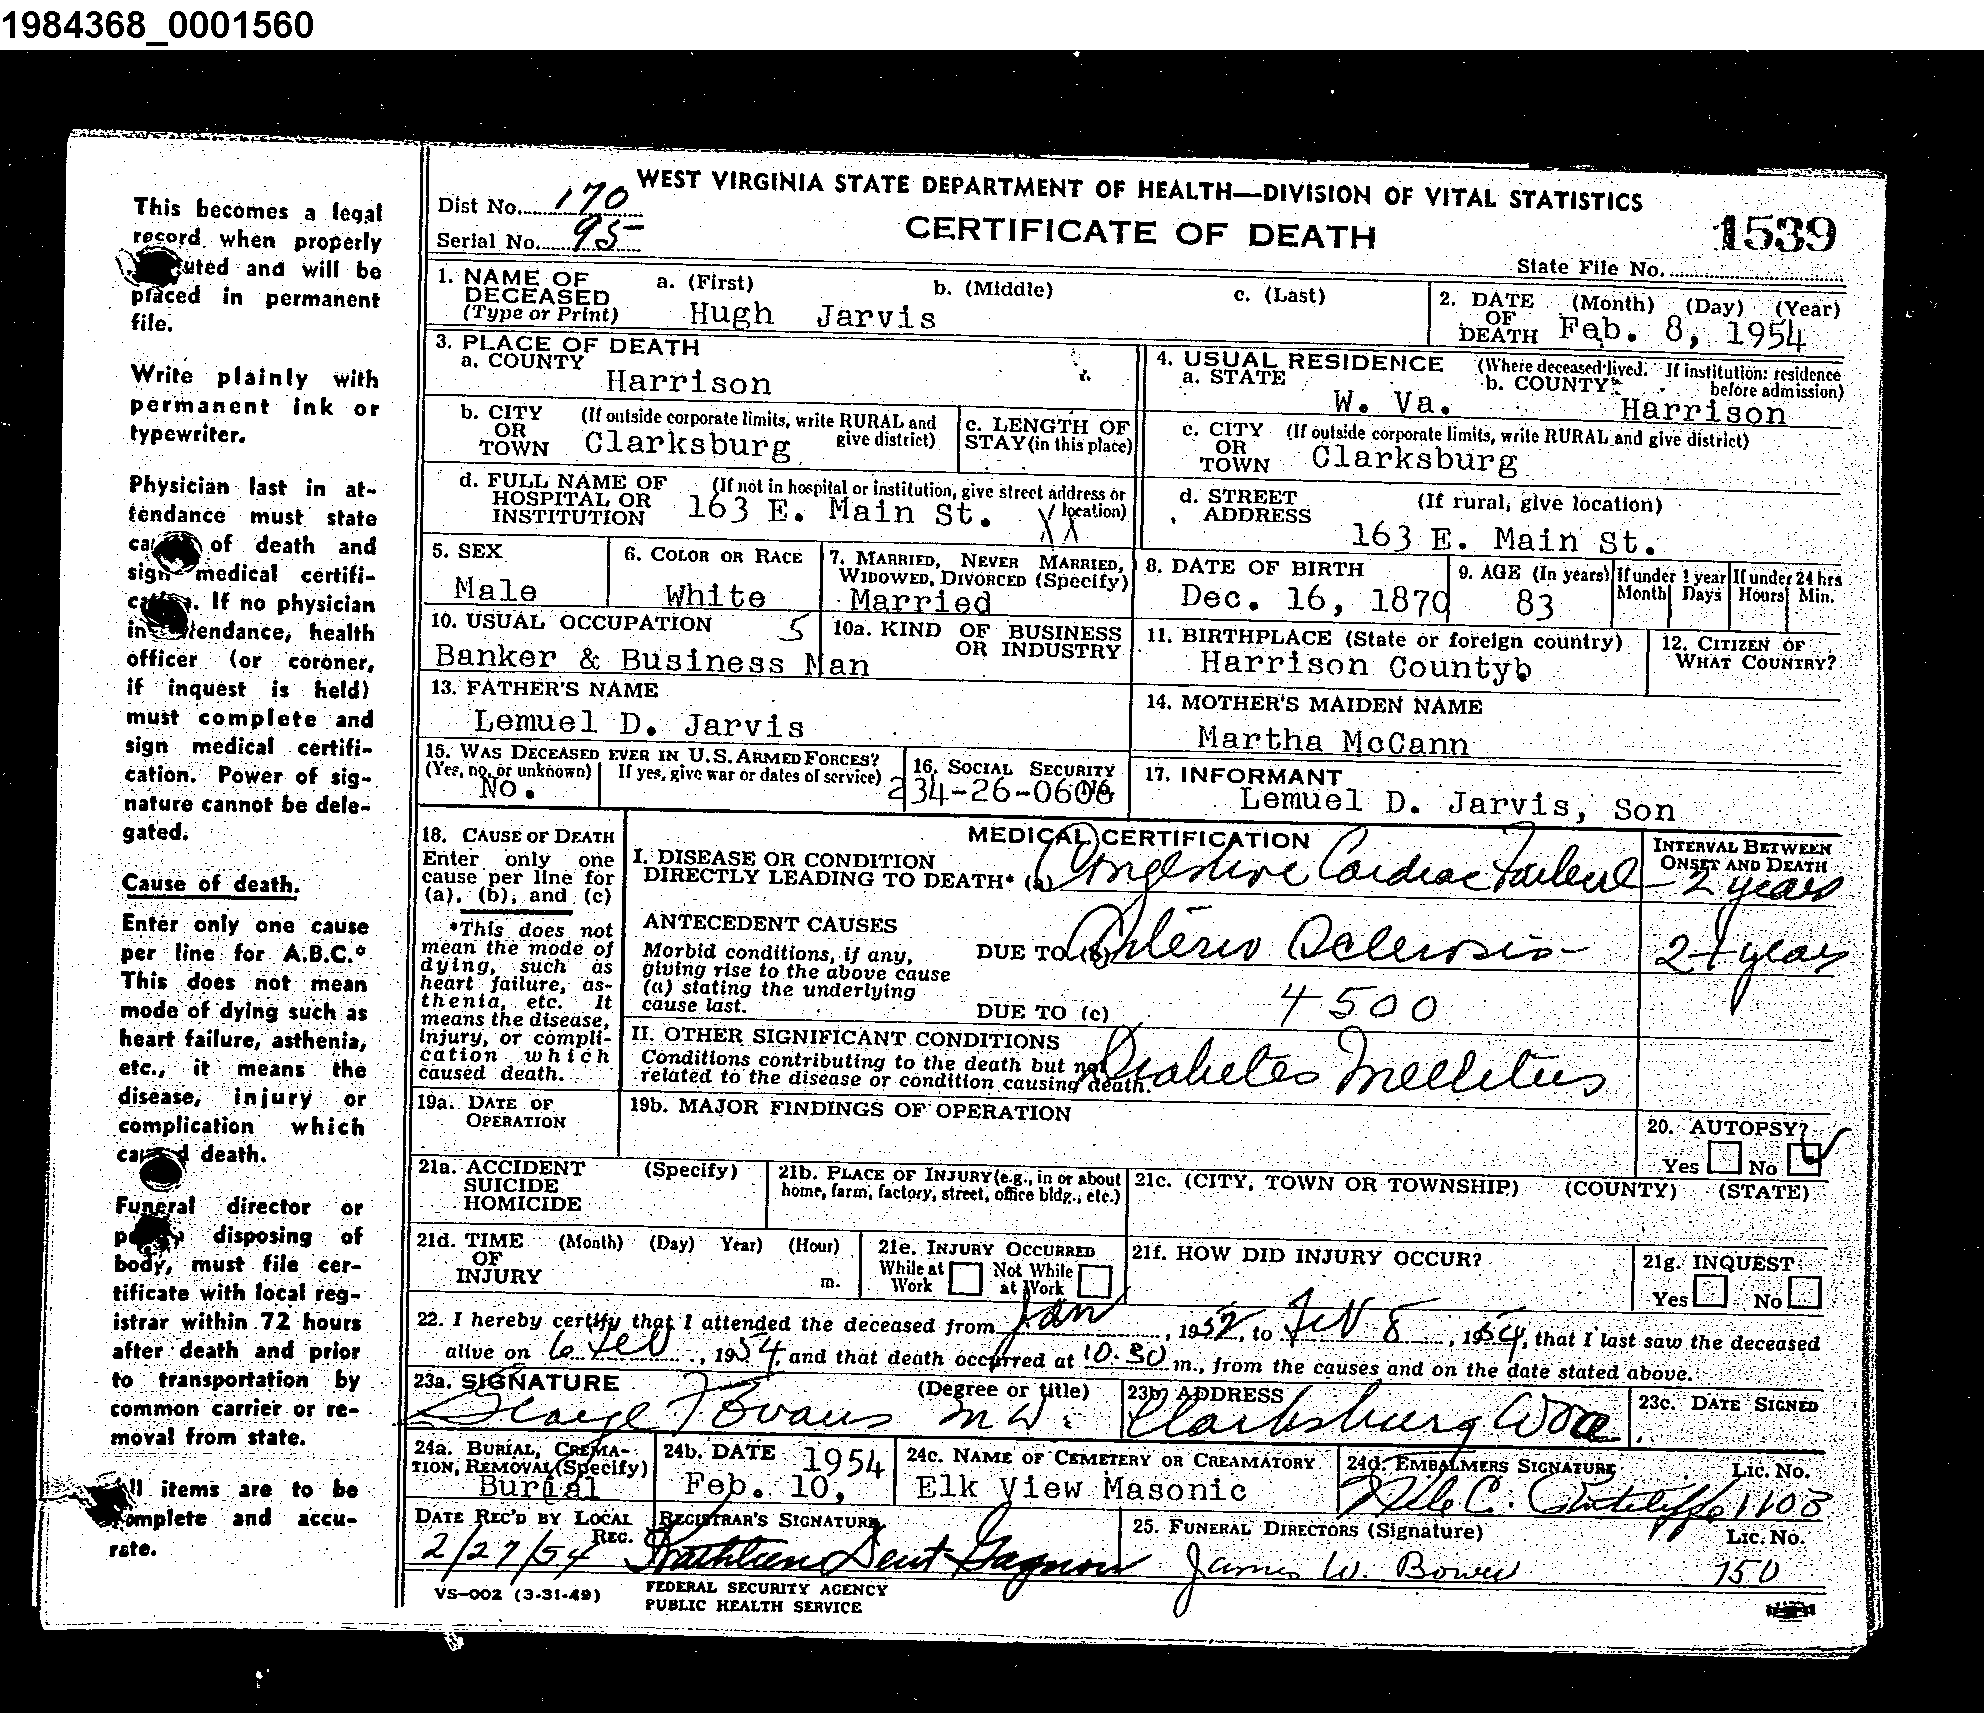 1984368_0001560
This becomes a legal
record when properly
uted and will be
placed in permanent
file.
Write plainly with
permanent ink or
typewriter.
Physician last in at-
tendance must state
of death and
sign medical certifi-
If no physician
in tendance, health
officer (or coroner,
if inquest is held)
must complete and
sign medical certifi-
cation. Power of sig-
nature cannot be dele-
gated.
Cause of death.
Enter only one cause
per line for A.B.C.*
This does not mean
mode of dying such as
heart failure, asthenia,
etc., it means the
disease, injury or
complication which
death.
Funeral director or
disposing of
body, must file cer-
tificate with local reg-
istrar within 72 hours
after death and prior
to transportation by
common carrier or re-
moval from state.
All items are to be
complete and accu-
rate.
WEST VIRGINIA STATE DEPARTMENT OF HEALTH—DIVISION OF VITAL STATISTICS
Dist No. 170
Serial No. 95
CERTIFICATE OF DEATH
1539
State File No.
1. NAME OF DECEASED (Type or Print) a. (First) b. (Middle) c. (Last)
Hugh Jarvis
2. DATE OF DEATH (Month) (Day) (Year)
Feb. 8, 1954
3. PLACE OF DEATH
a. COUNTY
Harrison
4. USUAL RESIDENCE (Where deceased lived. If institution: residence before admission)
a. STATE W. Va. b. COUNTY Harrison
b. CITY OR TOWN (If outside corporate limits, write RURAL and give district)
Clarksburg
c. LENGTH OF STAY (in this place)
c. CITY OR TOWN (If outside corporate limits, write RURAL and give district)
Clarksburg
d. FULL NAME OF HOSPITAL OR INSTITUTION (If not in hospital or institution, give street address or location)
163 E. Main St. XX
d. STREET ADDRESS (If rural, give location)
163 E. Main St.
5. SEX
Male
6. COLOR OR RACE
White
7. MARRIED, NEVER MARRIED, WIDOWED, DIVORCED (Specify)
Married
8. DATE OF BIRTH
Dec. 16, 1870
9. AGE (In years)
83
If under 1 year
Month Days
If under 24 hrs
Hours Min.
10. USUAL OCCUPATION 5
Banker & Business Man
10a. KIND OF BUSINESS OR INDUSTRY
11. BIRTHPLACE (State or foreign country)
Harrison Countyb
12. CITIZEN OF WHAT COUNTRY?
13. FATHER'S NAME
Lemuel D. Jarvis
14. MOTHER'S MAIDEN NAME
Martha McCann
15. WAS DECEASED EVER IN U.S. ARMED FORCES?
(Yes, no, or unknown) If yes, give war or dates of service)
No.
16. SOCIAL SECURITY
17. INFORMANT
Lemuel D. Jarvis, Son
18. CAUSE OF DEATH
Enter only one
cause per line for
(a), (b), and (c)
*This does not
mean the mode of
dying, such as
heart failure, as-
thenia, etc. It
means the disease,
injury, or compli-
cation which
caused death.
MEDICAL CERTIFICATION
I. DISEASE OR CONDITION
DIRECTLY LEADING TO DEATH* (a) Congestive Cardiac Failure
INTERVAL BETWEEN ONSET AND DEATH
2 years
ANTECEDENT CAUSES
Morbid conditions, if any,
giving rise to the above cause
(a) stating the underlying
cause last.
DUE TO (b) Arterio Sclerosis
2+ years
DUE TO (c) 4500
II. OTHER SIGNIFICANT CONDITIONS
Conditions contributing to the death but not
related to the disease or condition causing death.
Diabetes Mellitus
19a. DATE OF OPERATION
19b. MAJOR FINDINGS OF OPERATION
20. AUTOPSY?
Yes No ✓
21a. ACCIDENT SUICIDE HOMICIDE (Specify)
21b. PLACE OF INJURY (e.g., in or about home, farm, factory, street, office bldg., etc.)
21c. (CITY, TOWN OR TOWNSHIP) (COUNTY) (STATE)
21d. TIME OF INJURY (Month) (Day) Year) (Hour) m.
21e. INJURY OCCURRED
While at Work Not While at Work
21f. HOW DID INJURY OCCUR?
21g. INQUEST
Yes No
22. I hereby certify that I attended the deceased from Jan, 1952, to Feb 8, 1954, that I last saw the deceased
alive on 6 Feb, 1954, and that death occurred at 10:30 m., from the causes and on the date stated above.
23a. SIGNATURE (Degree or title)
George F Evans M D.
23b. ADDRESS
Clarksburg W Va
23c. DATE SIGNED
24a. BURIAL, CREMATION, REMOVAL (Specify)
Burial
24b. DATE 1954
Feb. 10,
24c. NAME OF CEMETERY OR CREAMATORY
Elk View Masonic
24d. EMBALMERS SIGNATURE Lic. No.
1103
DATE REC'D BY LOCAL REG.
2/27/54
REGISTRAR'S SIGNATURE
Kathleen Dent Gagnon
25. FUNERAL DIRECTORS (Signature) Lic. No.
James W. Bower 150
VS-002 (3-31-49)
FEDERAL SECURITY AGENCY
PUBLIC HEALTH SERVICE